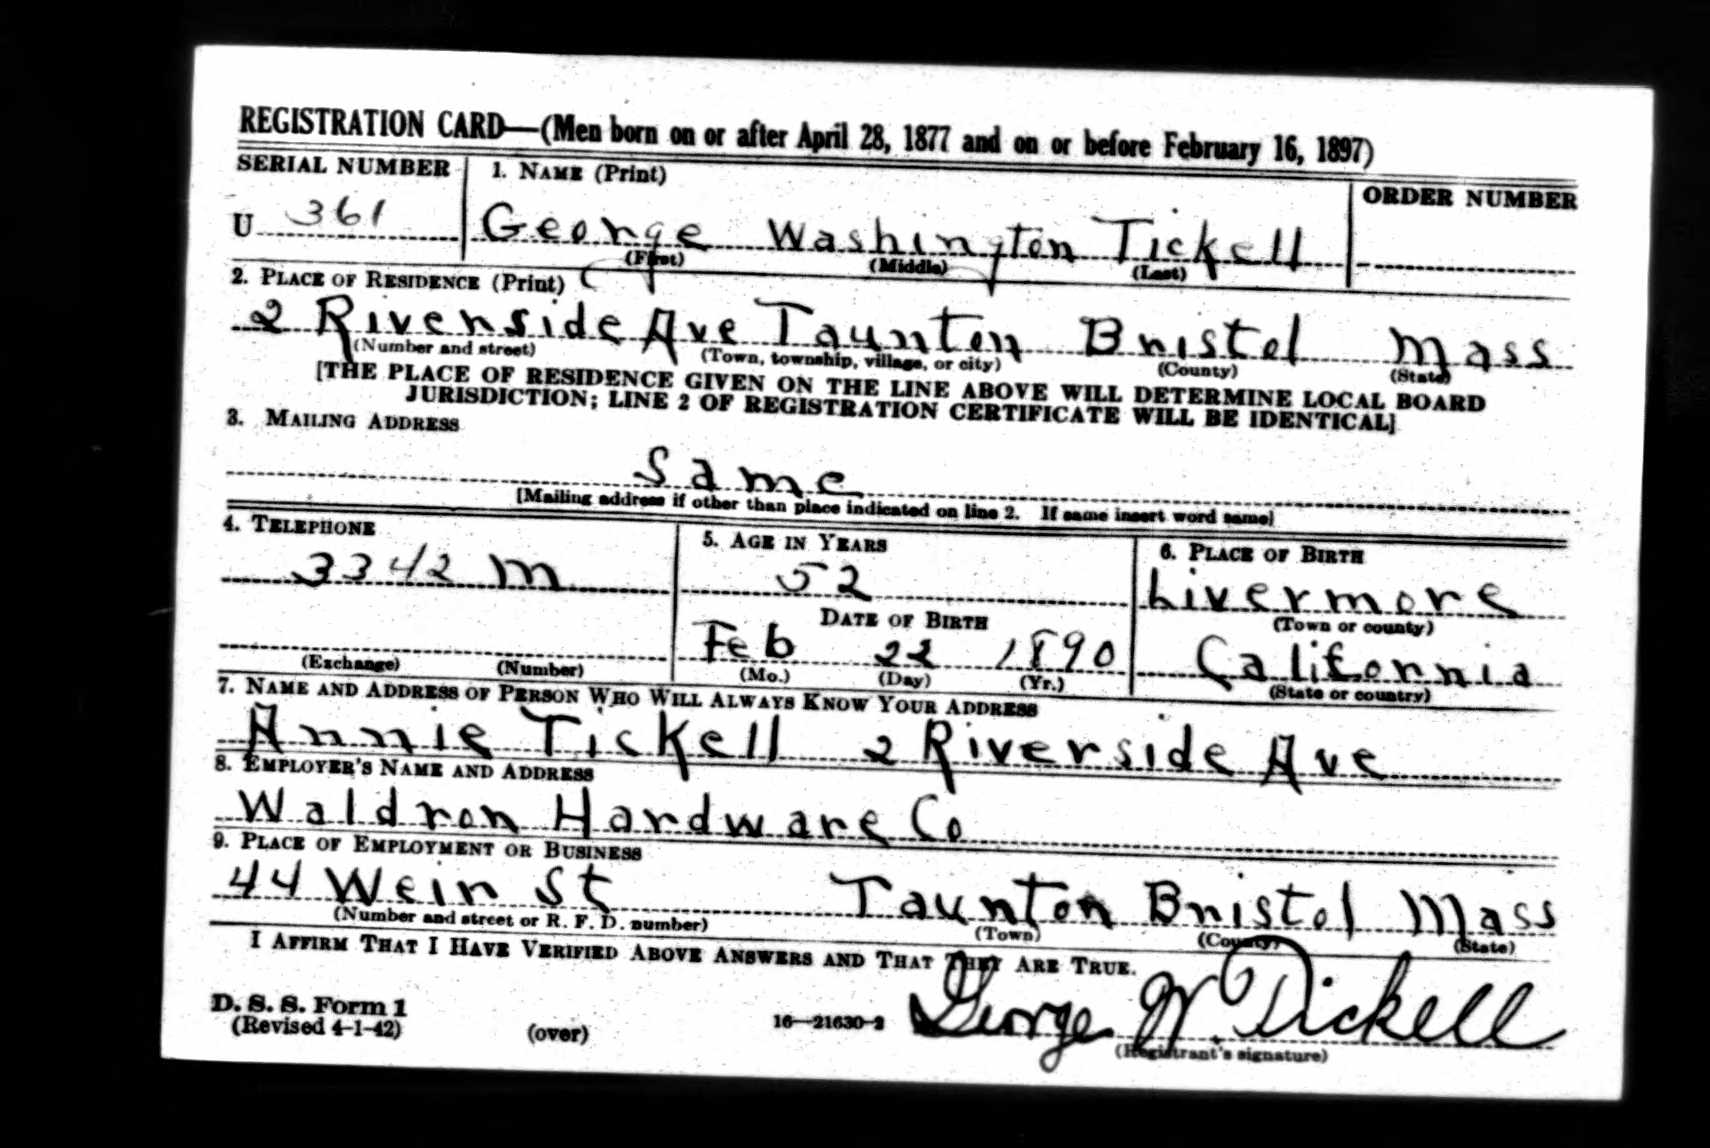 REGISTRATION CARD—(Men born on or after April 28, 1877 and on or before February 16, 1897)
SERIAL NUMBER 1. NAME (Print) ORDER NUMBER
U 361 George Washington Tickell
(First) (Middle) (Last)
2. PLACE OF RESIDENCE (Print)
2 Riverside Ave Taunton Bristol Mass
(Number and street) (Town, township, village, or city) (County) (State)
[THE PLACE OF RESIDENCE GIVEN ON THE LINE ABOVE WILL DETERMINE LOCAL BOARD
JURISDICTION; LINE 2 OF REGISTRATION CERTIFICATE WILL BE IDENTICAL]
3. MAILING ADDRESS
Same
[Mailing address if other than place indicated on line 2. If same insert word same]
4. TELEPHONE 5. AGE IN YEARS 6. PLACE OF BIRTH
3342 M 52 Livermore
DATE OF BIRTH (Town or county)
Feb 22 1890 California
(Exchange) (Number) (Mo.) (Day) (Yr.) (State or country)
7. NAME AND ADDRESS OF PERSON WHO WILL ALWAYS KNOW YOUR ADDRESS
Annie Tickell 2 Riverside Ave
8. EMPLOYER'S NAME AND ADDRESS
Waldron Hardware Co
9. PLACE OF EMPLOYMENT OR BUSINESS
44 Weir St Taunton Bristol Mass
(Number and street or R. F. D. number) (Town) (County) (State)
I AFFIRM THAT I HAVE VERIFIED ABOVE ANSWERS AND THAT THEY ARE TRUE.
D. S. S. Form 1
(Revised 4-1-42) (over) 16—21630-2 George W Tickell
(Registrant's signature)